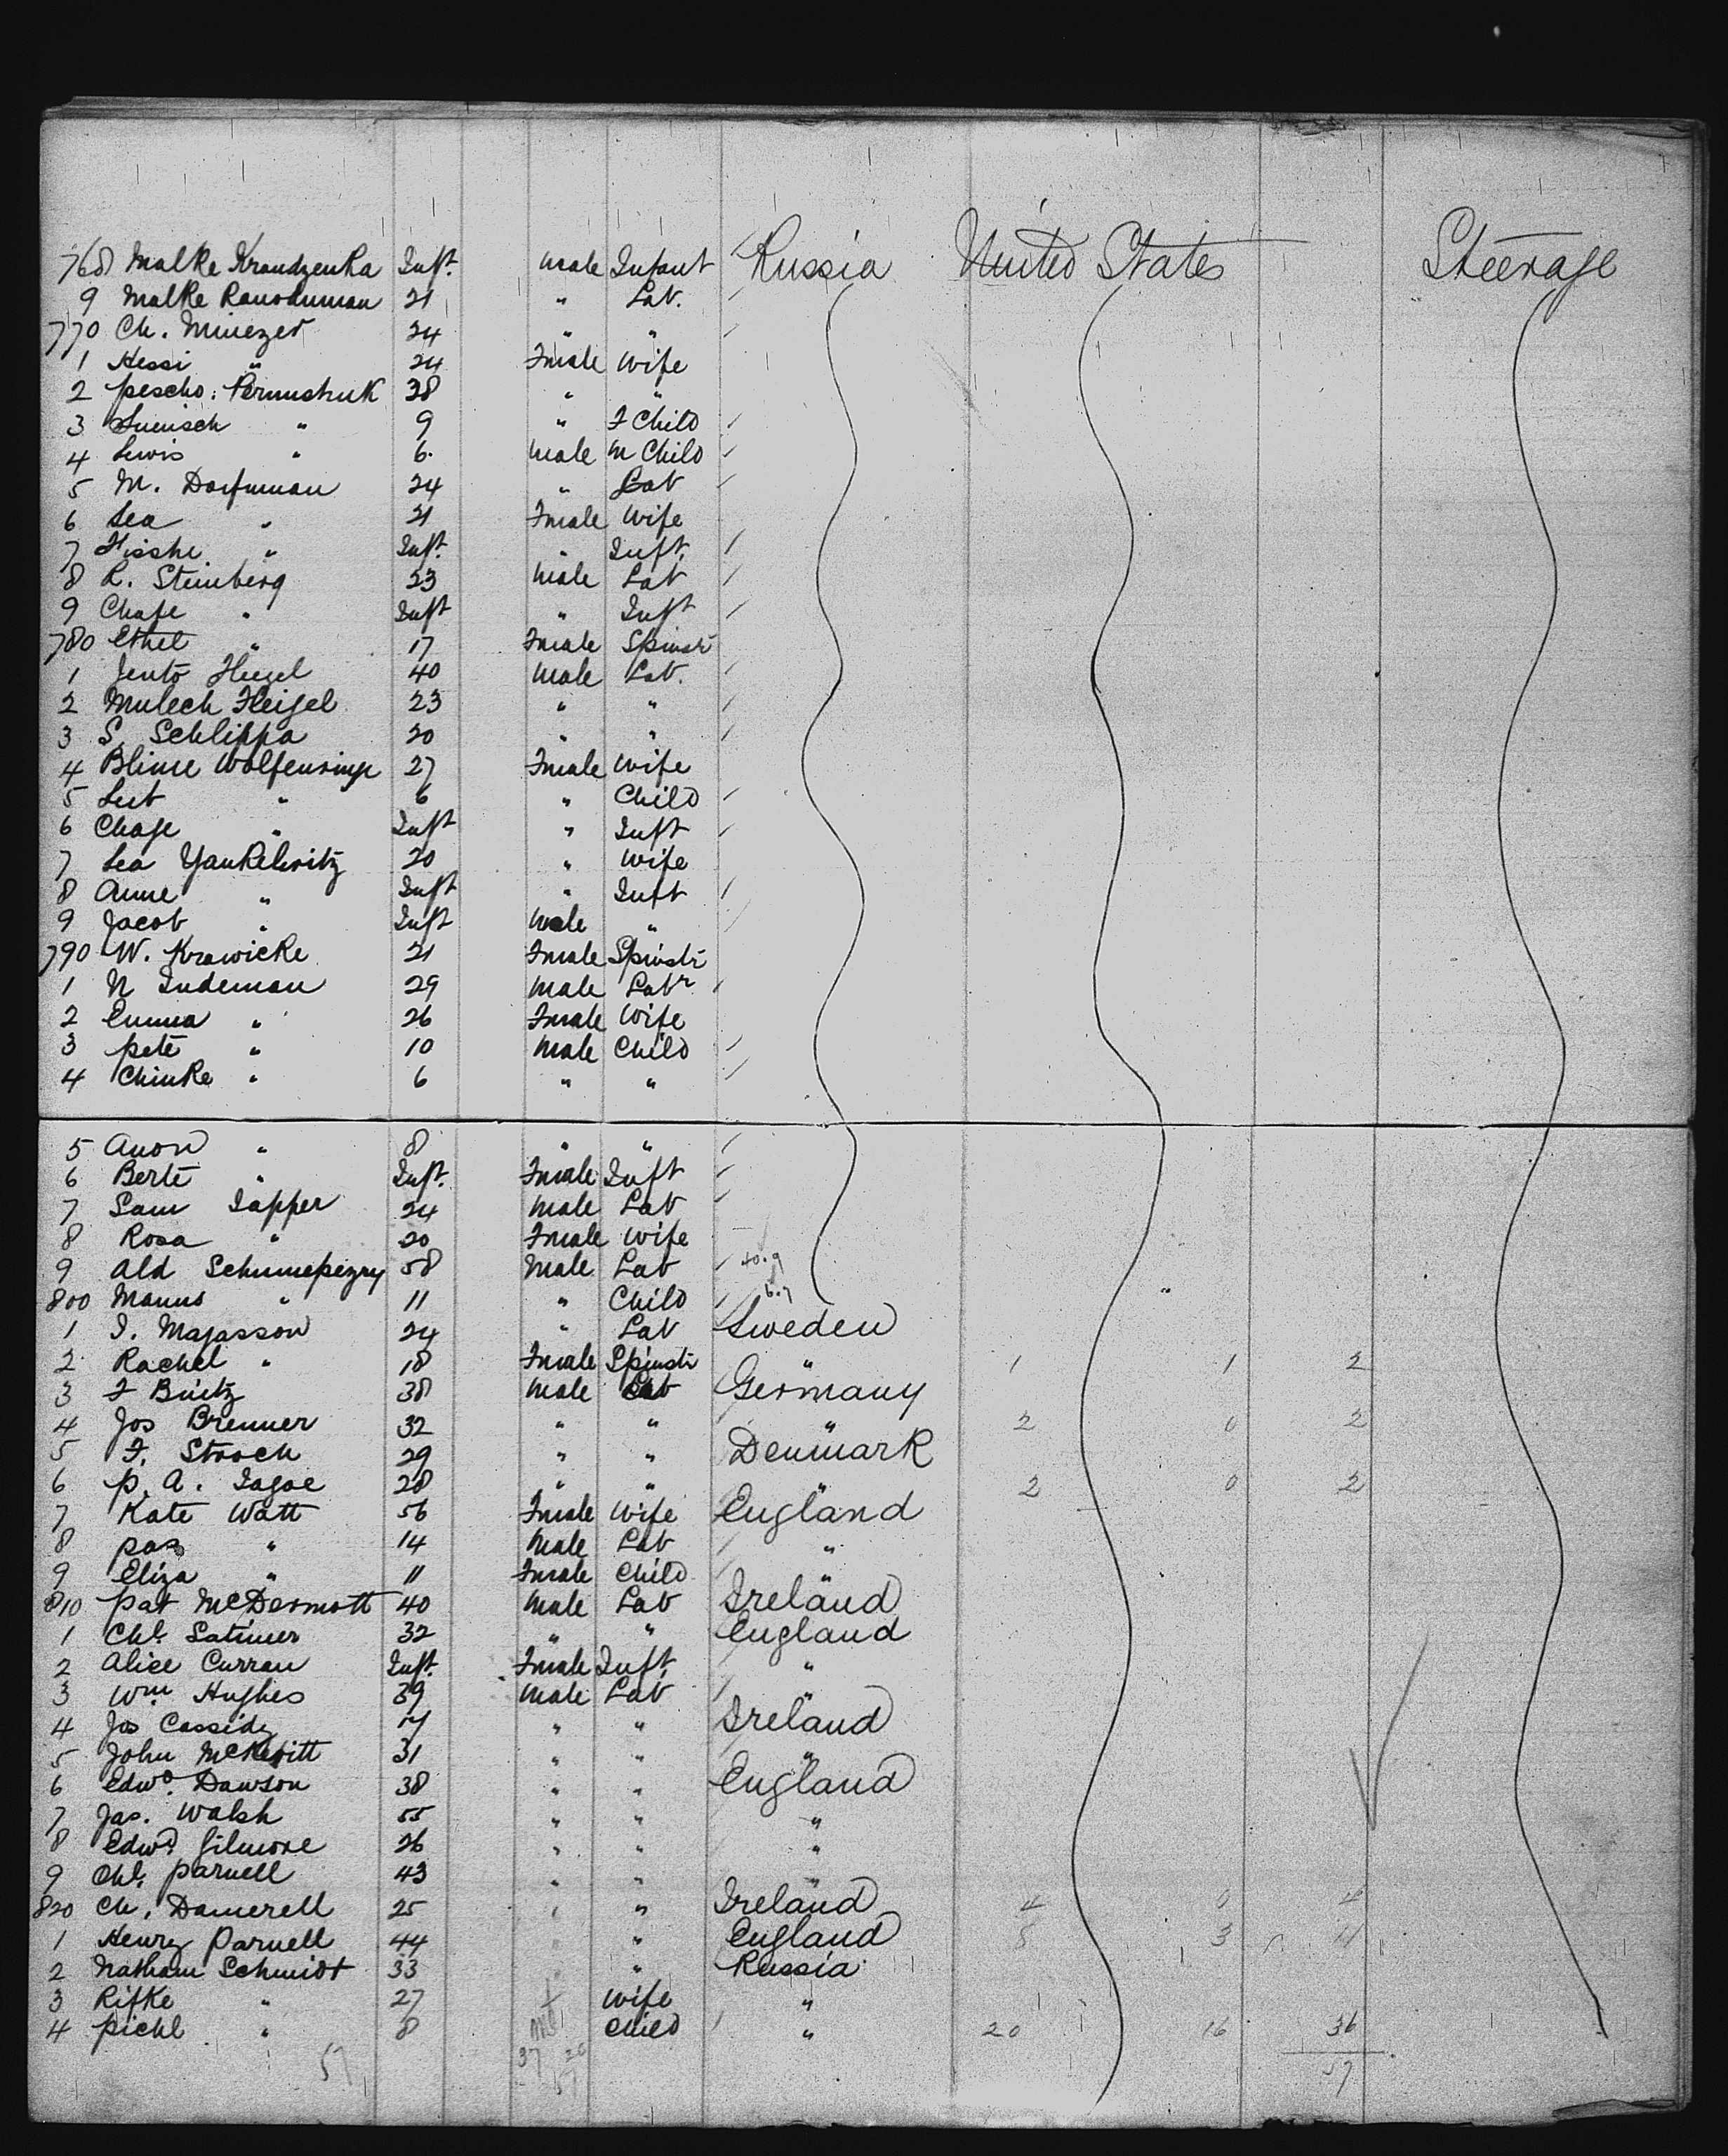 768 Malke Krandzenka Inft. Male Infant Russia United States Steerage
9 Malke 21 " Lab.
770 Ch. Miniezer 24 " "
1 Hessi " 24 Fmale Wife
2 Pescho. 38 " "
3 " 9 " F Child
4 Lewis " 6. Male M Child
5 M. Dorfmann 24 " Lab
6 Lea " 21 Fmale Wife
7 Fisshe " Inft. " Inft.
8 L. Steinberg 23 Male Lab
9 Chafe " Inft " Inft
780 Ethel " 17 Fmale Spinstr
1 Jento 40 Male Lab.
2 Mulech Fleigel 23 " "
3 S. Schlippa 20 " "
4 Blime 27 Fmale Wife
5 " 6 " Child
6 Chafe " Inft " Inft
7 Lea Yankelwitz 20 " Wife
8 Anne " Inft " Inft
9 Jacob " Inft Male "
790 W. Krawicke 21 Fmale Spinstr
1 N Indeman 29 Male Labr
2 Emma " 26 Fmale Wife
3 Pete " 10 Male Child
4 Chinke " 6 " "
5 Anon " 8 " "
6 Berte " Inft. Fmale Inft
7 Sam Sapper 24 Male Lab
8 Rosa " 20 Fmale Wife
9 Ald 58 Male Lab
800 Manns " 11 " Child
1 I. Magasson 24 " Lab Sweden
2 Rachel " 18 Fmale Spinstr " 1 1 2
3 F 38 Male Lab Germany
4 Jos Brenner 32 " " " 2 0 2
5 F. Strock 29 " " Denmark
6 P. A. 28 " " " 2 0 2
7 Kate Watt 56 Fmale Wife England
8 " 14 Male Lab "
9 Eliza " 11 Fmale Child "
810 Pat McDermott 40 Male Lab Ireland
1 Chs. Latimer 32 " " England
2 Alice Curran Inft. Fmale Inft. "
3 Wm Hughes 39 Male Lab "
4 Jos Cassidy " " Ireland
5 John McKevitt 31 " " "
6 Edwd. Dawson 38 " " England
7 Jas. Walsh 55 " " "
8 Edwd Gilmore 26 " " "
9 Chs. Parnell 43 " " "
820 Ch. Damerell 25 " " Ireland 4 0 4
1 Henry Parnell 44 " " England 8 3 11
2 Nathan Schmidt 33 " Russia
3 Rifke " 27 Wife "
4 Pichl " 8 Child " 20 16 36
57 37 20 57
57